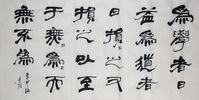 為學者日
益為道者
日損〻之又
損之以至
于無〻為〻而
無不為